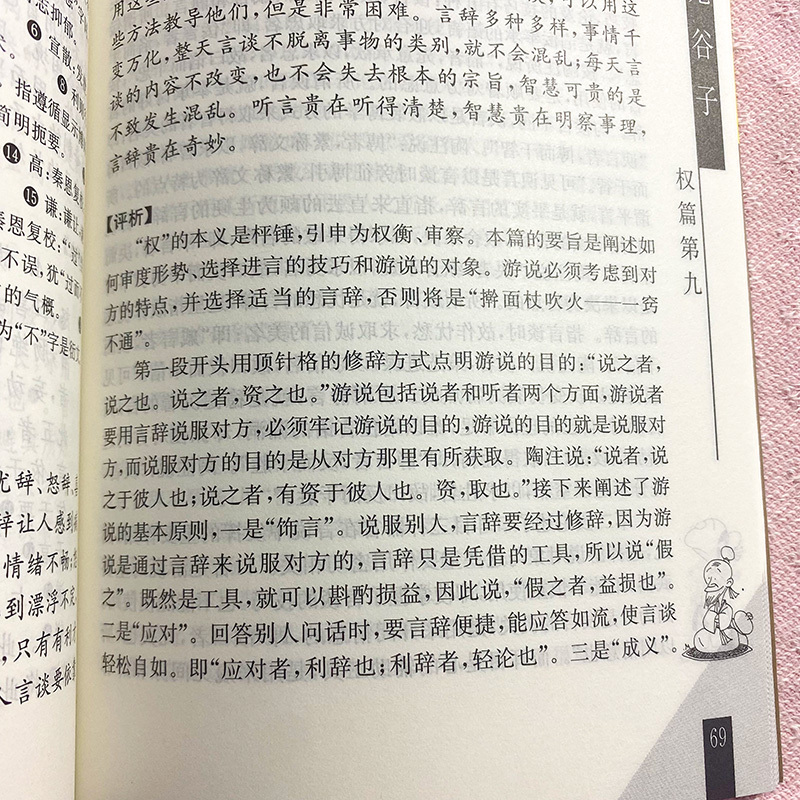 忠抑郁。
⑥ 宣散：发
⑧ 利
指遵循显示
简明扼要。
⑭ 高：秦恩复校
⑮ 谦：谦让
秦恩复校：“过
不误，犹“过而
的气概。
为“不”字是衍文
尤辞、怒辞、喜
辞让人感到
情绪不畅；怒
到漂浮不定
，只有有利
人言谈要依
用这些
可以用这
些方法教导他们，但是非常困难。言辞多种多样，事情千
变万化，整天言谈不脱离事物的类别，就不会混乱；每天言
谈的内容不改变，也不会失去根本的宗旨，智慧可贵的是
不致发生混乱。听言贵在听得清楚，智慧贵在明察事理，
言辞贵在奇妙。
【评析】
“权”的本义是枰锤，引申为权衡、审察。本篇的要旨是阐述如
何审度形势、选择进言的技巧和游说的对象。游说必须考虑到对
方的特点，并选择适当的言辞，否则将是“擀面杖吹火——一窍
不通”。
第一段开头用顶针格的修辞方式点明游说的目的：“说之者，
说之也。说之者，资之也。”游说包括说者和听者两个方面，游说者
要用言辞说服对方，必须牢记游说的目的，游说的目的就是说服对
方，而说服对方的目的是从对方那里有所获取。陶注说：“说者，说
之于彼人也；说之者，有资于彼人也。资，取也。”接下来阐述了游
说的基本原则，一是“饰言”。说服别人，言辞要经过修辞，因为游
说是通过言辞来说服对方的，言辞只是凭借的工具，所以说“假
之”。既然是工具，就可以斟酌损益，因此说，“假之者，益损也”。
二是“应对”。回答别人问话时，要言辞便捷，能应答如流，使言谈
轻松自如。即“应对者，利辞也；利辞者，轻论也”。三是“成义”。
谷子
权篇第九
69